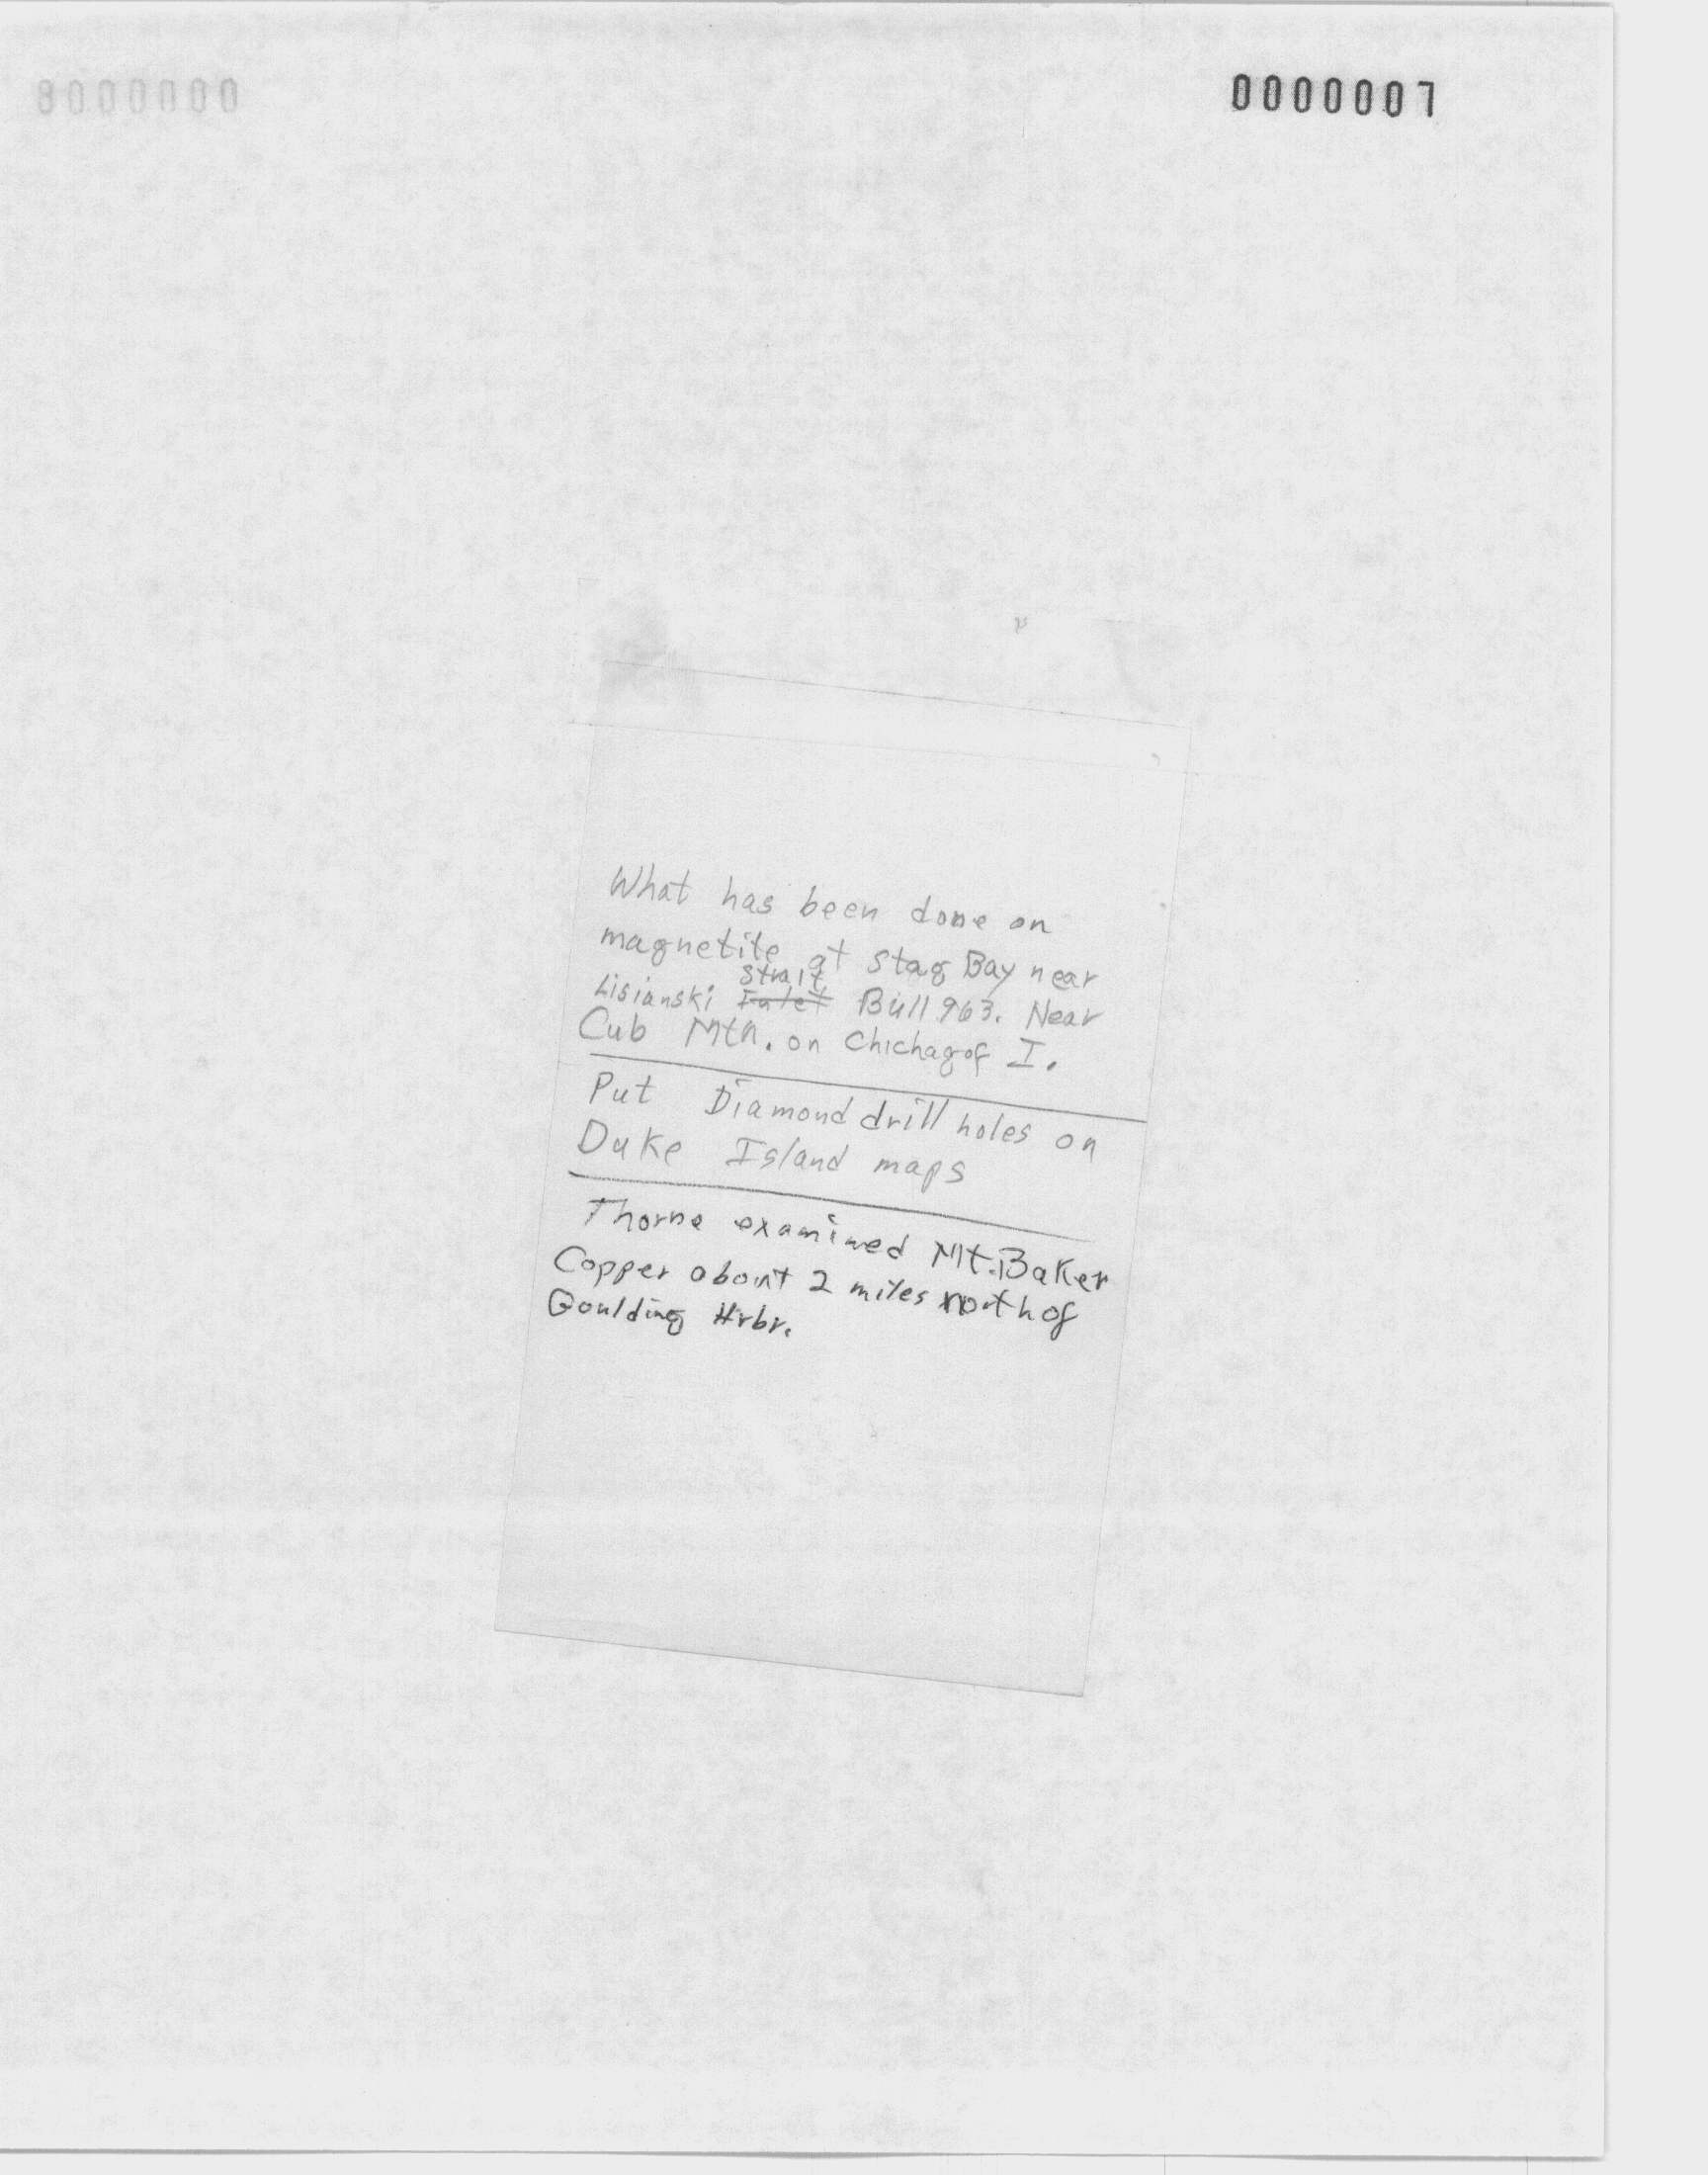 0000007
What has been done on
magnetite at Stag Bay near
Strait
Lisianski Inlet Bull 963. Near
Cub Mtn. on Chichagof I.
Put Diamond drill holes on
Duke Island maps
Thorne examined Mt. Baker
Copper about 2 miles north of
Goulding Hrbr.